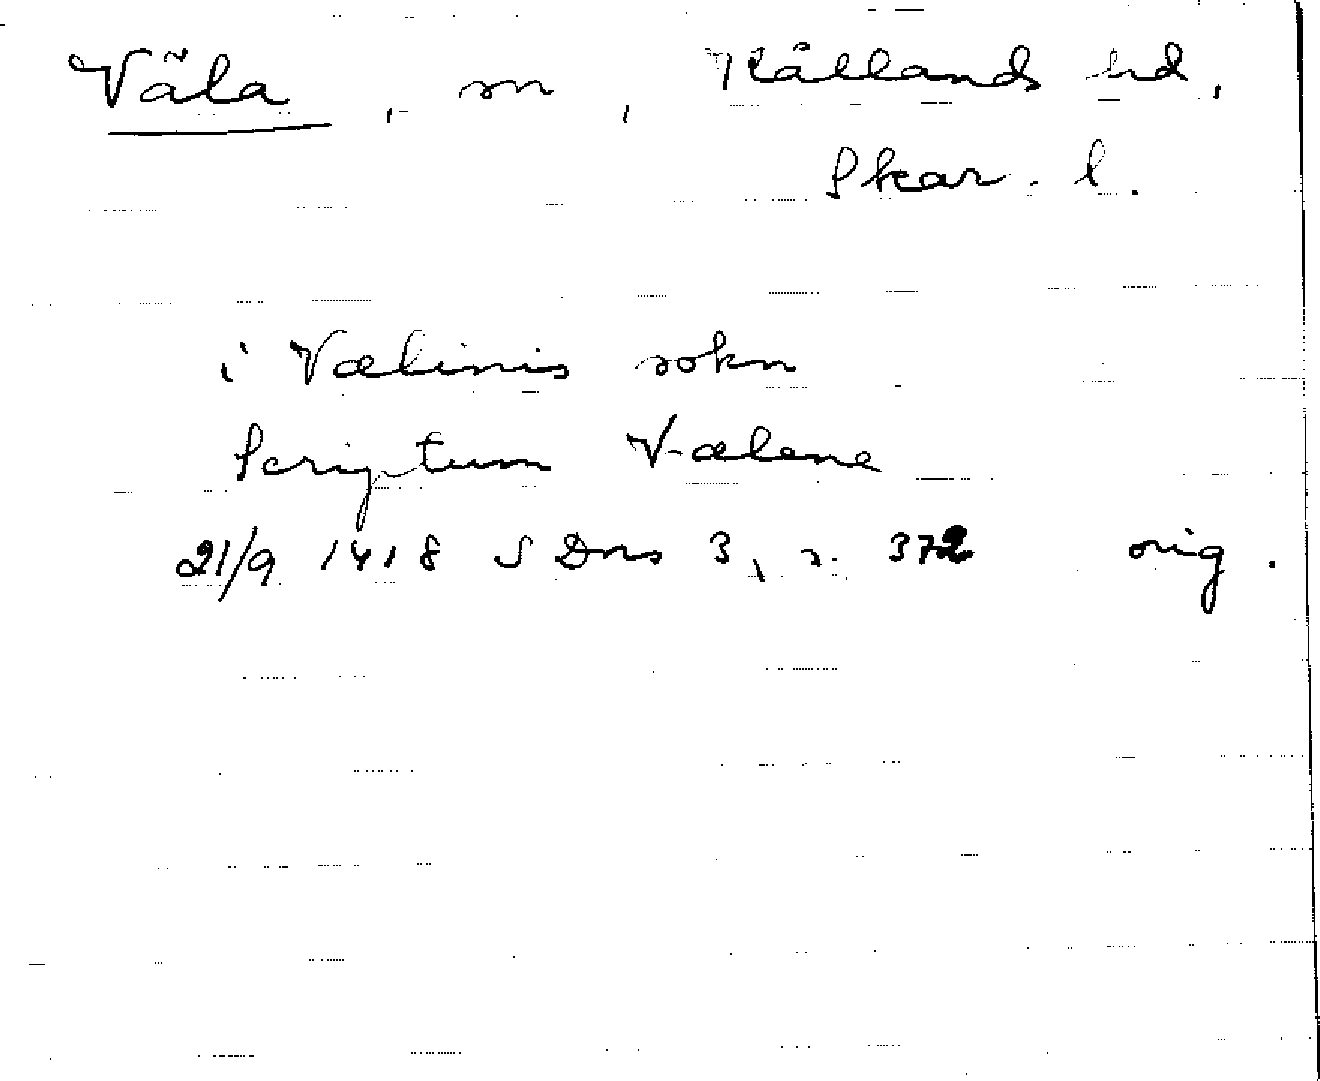 Väla, sn, Kållands hd,
Skar. l.
i Vælinis sokn
Scriptum Vælene
21/9 1418 SDns 3, s. 372 orig.